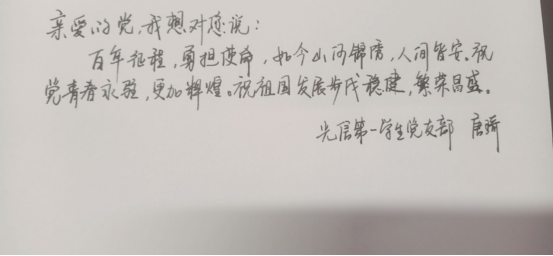 亲爱的党,我想对您说:
百年征程,勇担使命,如今山河锦绣,人间皆安。祝
党青春永驻,更加辉煌。祝祖国发展步伐稳健,繁荣昌盛。
光信第一学生党支部 唐骑